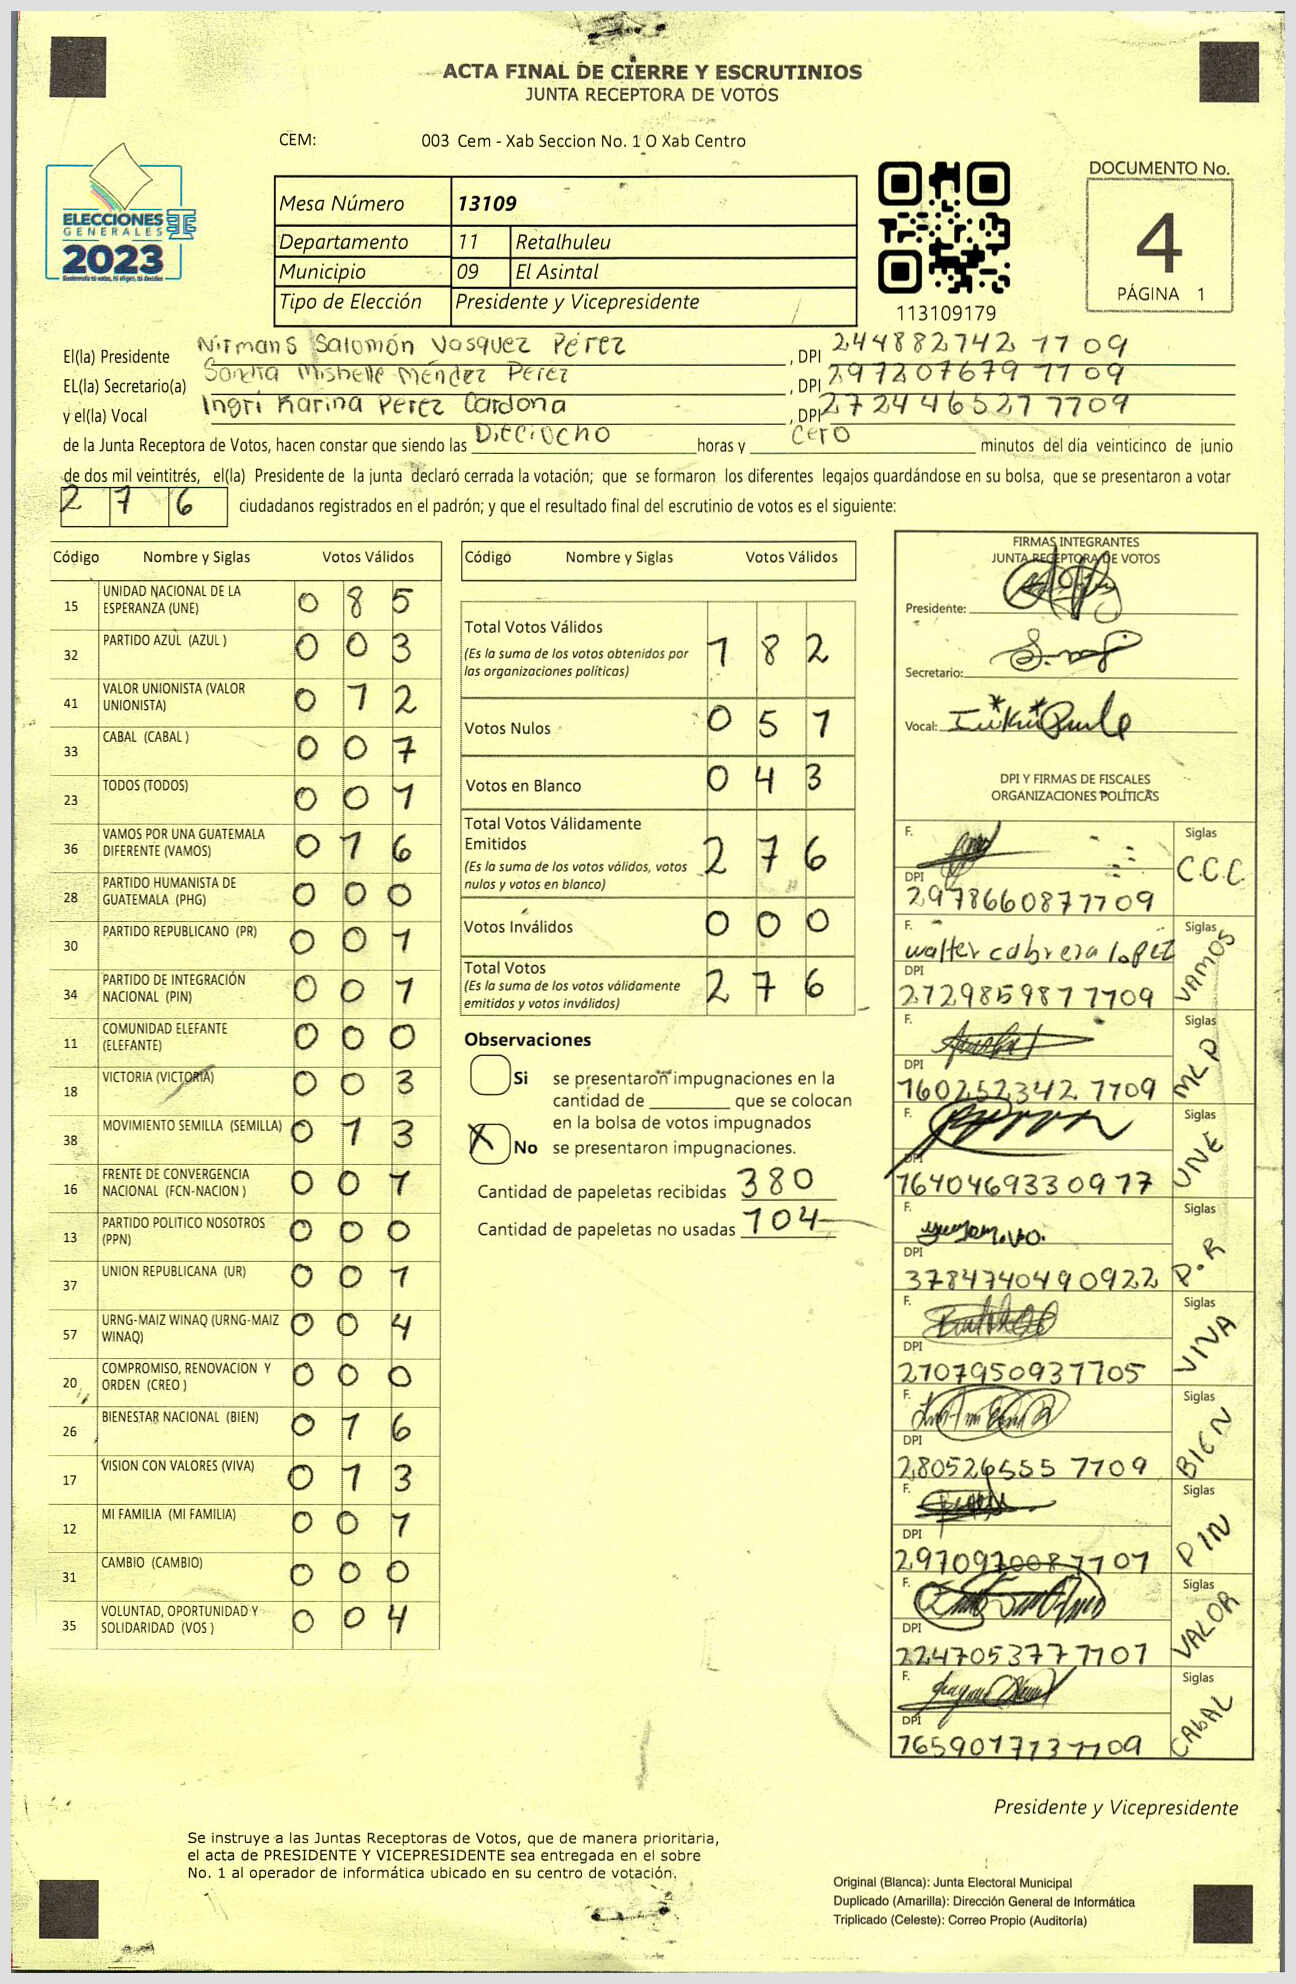 ACTA FINAL DE CIERRE Y ESCRUTINIOS
JUNTA RECEPTORA DE VOTOS
CEM: 003 Cem - Xab Seccion No. 1 O Xab Centro
ELECCIONES
GENERALES
2023
Mesa Número 13109
Departamento 11 Retalhuleu
Municipio 09 El Asintal
Tipo de Elección Presidente y Vicepresidente
113109179
DOCUMENTO No.
4
PÁGINA 1
El(la) Presidente Nirmans Salomón Vasquez Pérez, DPI 244882742 1109
EL(la) Secretario(a) Sandra Mishelle Méndez Perez, DPI 297207679 1109
y el(la) Vocal Ingri Karina Perez Cardona, DPI 2724465271109
de la Junta Receptora de Votos, hacen constar que siendo las Dieciocho horas y cero minutos del día veinticinco de junio
de dos mil veintitrés, el(la) Presidente de la junta declaró cerrada la votación; que se formaron los diferentes legajos guardándose en su bolsa, que se presentaron a votar
276 ciudadanos registrados en el padrón; y que el resultado final del escrutinio de votos es el siguiente:
Código Nombre y Siglas Votos Válidos
15 UNIDAD NACIONAL DE LA ESPERANZA (UNE) 0 8 5
32 PARTIDO AZUL (AZUL ) 0 0 3
41 VALOR UNIONISTA (VALOR UNIONISTA) 0 1 2
33 CABAL (CABAL ) 0 0 7
23 TODOS (TODOS) 0 0 1
36 VAMOS POR UNA GUATEMALA DIFERENTE (VAMOS) 0 1 6
28 PARTIDO HUMANISTA DE GUATEMALA (PHG) 0 0 0
30 PARTIDO REPUBLICANO (PR) 0 0 1
34 PARTIDO DE INTEGRACIÓN NACIONAL (PIN) 0 0 1
11 COMUNIDAD ELEFANTE (ELEFANTE) 0 0 0
18 VICTORIA (VICTORIA) 0 0 3
38 MOVIMIENTO SEMILLA (SEMILLA) 0 1 3
16 FRENTE DE CONVERGENCIA NACIONAL (FCN-NACION ) 0 0 1
13 PARTIDO POLITICO NOSOTROS (PPN) 0 0 0
37 UNION REPUBLICANA (UR) 0 0 1
57 URNG-MAIZ WINAQ (URNG-MAIZ WINAQ) 0 0 4
20 COMPROMISO, RENOVACION Y ORDEN (CREO ) 0 0 0
26 BIENESTAR NACIONAL (BIEN) 0 1 6
17 VISION CON VALORES (VIVA) 0 1 3
12 MI FAMILIA (MI FAMILIA) 0 0 1
31 CAMBIO (CAMBIO) 0 0 0
35 VOLUNTAD, OPORTUNIDAD Y SOLIDARIDAD (VOS ) 0 0 4
Código Nombre y Siglas Votos Válidos
Total Votos Válidos 1 8 2
(Es la suma de los votos obtenidos por
las organizaciones políticas)
Votos Nulos 0 5 1
Votos en Blanco 0 4 3
Total Votos Válidamente
Emitidos 2 7 6
(Es la suma de los votos válidos, votos
nulos y votos en blanco)
Votos Inválidos 0 0 0
Total Votos 2 7 6
(Es la suma de los votos válidamente
emitidos y votos inválidos)
Observaciones
Si se presentaron impugnaciones en la
cantidad de ________ que se colocan
en la bolsa de votos impugnados
X No se presentaron impugnaciones.
Cantidad de papeletas recibidas 380
Cantidad de papeletas no usadas 104
FIRMAS INTEGRANTES
JUNTA RECEPTORA DE VOTOS
Presidente:
Secretario:
Vocal:
DPI Y FIRMAS DE FISCALES
ORGANIZACIONES POLÍTICAS
F. Siglas C.C.C.
DPI 2978660871109
F. walter cabrera lopez Siglas VAMOS
DPI 2729859871109
F. Siglas MLP
DPI 160252342 1109
F. Siglas UNE
DPI 1640469330911
F. Siglas P.R
DPI 3784740490922
F. Siglas VIVA
DPI 2707950931105
F. Siglas BIEN
DPI 280526555 1109
F. Siglas PIN
DPI 2970970081101
F. Siglas VALOR
DPI 2247053771101
F. Siglas CABAL
DPI 1659017131109
Presidente y Vicepresidente
Se instruye a las Juntas Receptoras de Votos, que de manera prioritaria,
el acta de PRESIDENTE Y VICEPRESIDENTE sea entregada en el sobre
No. 1 al operador de informática ubicado en su centro de votación.
Original (Blanca): Junta Electoral Municipal
Duplicado (Amarilla): Dirección General de Informática
Triplicado (Celeste): Correo Propio (Auditoría)